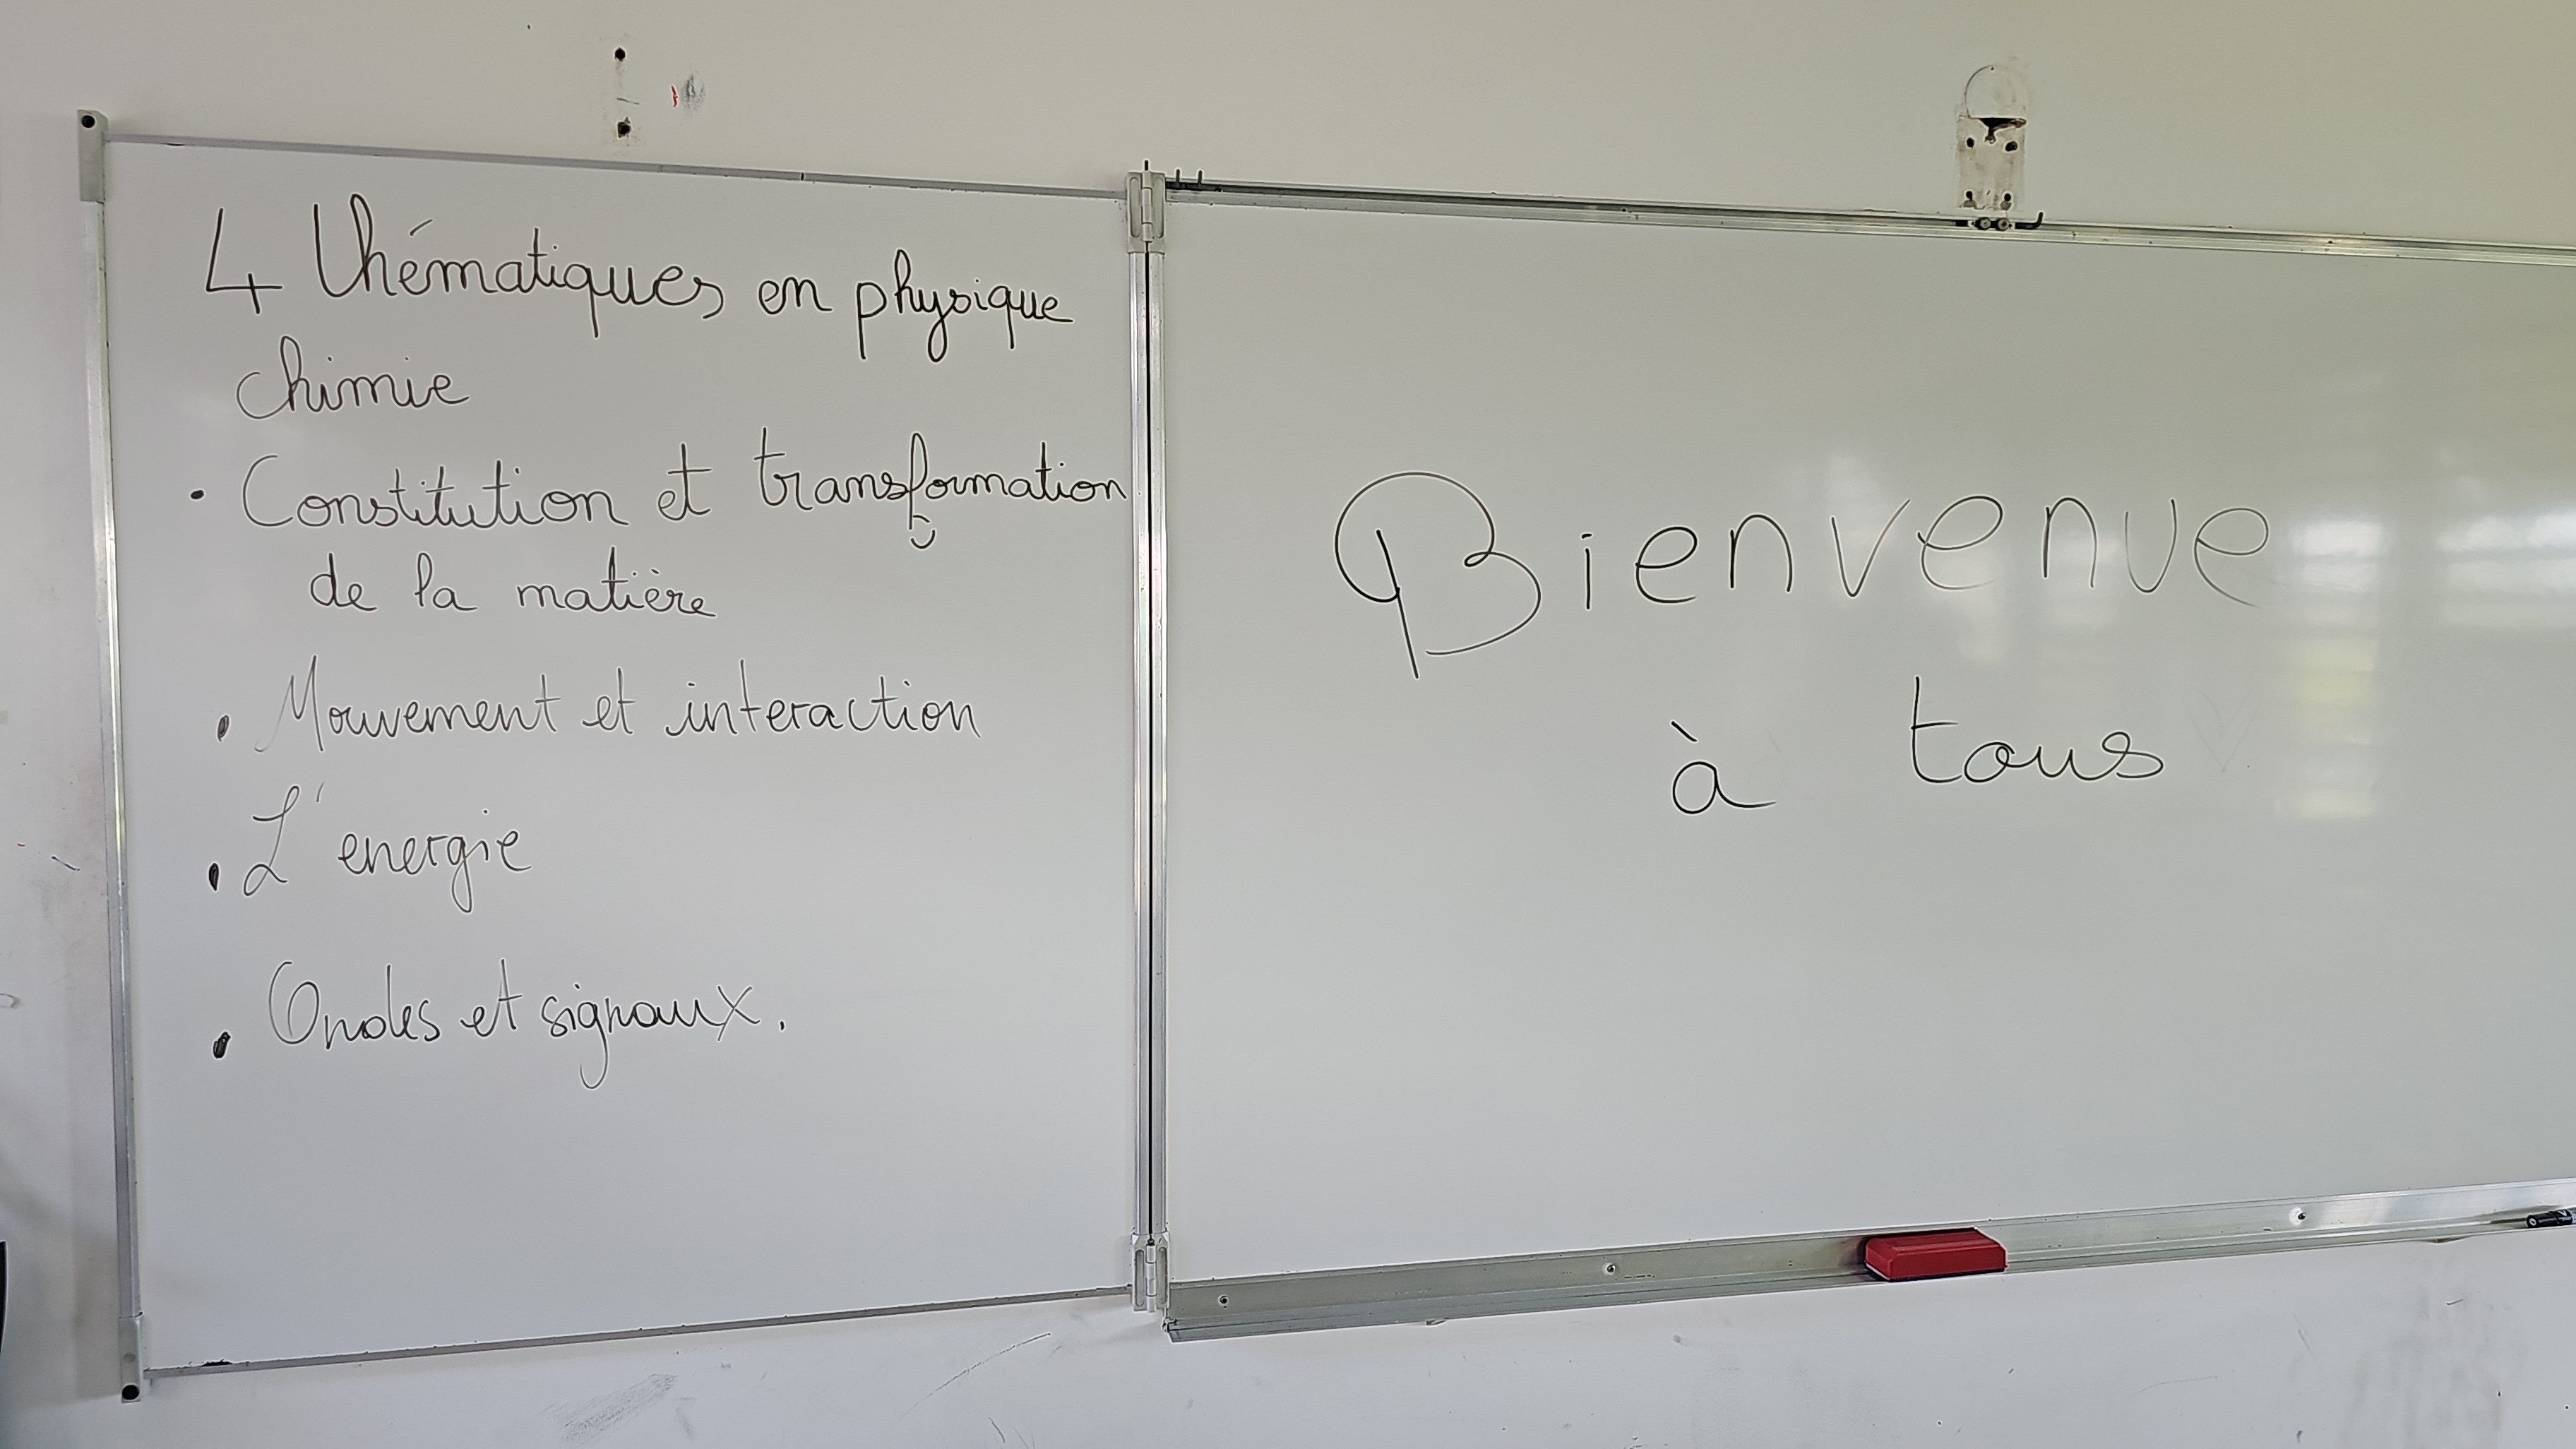 4 thématiques en physique
chimie
• Constitution et transformation
de la matière
• Mouvement et interaction
• L'energie
• Ondes et signaux.
Bienvenue
à tous